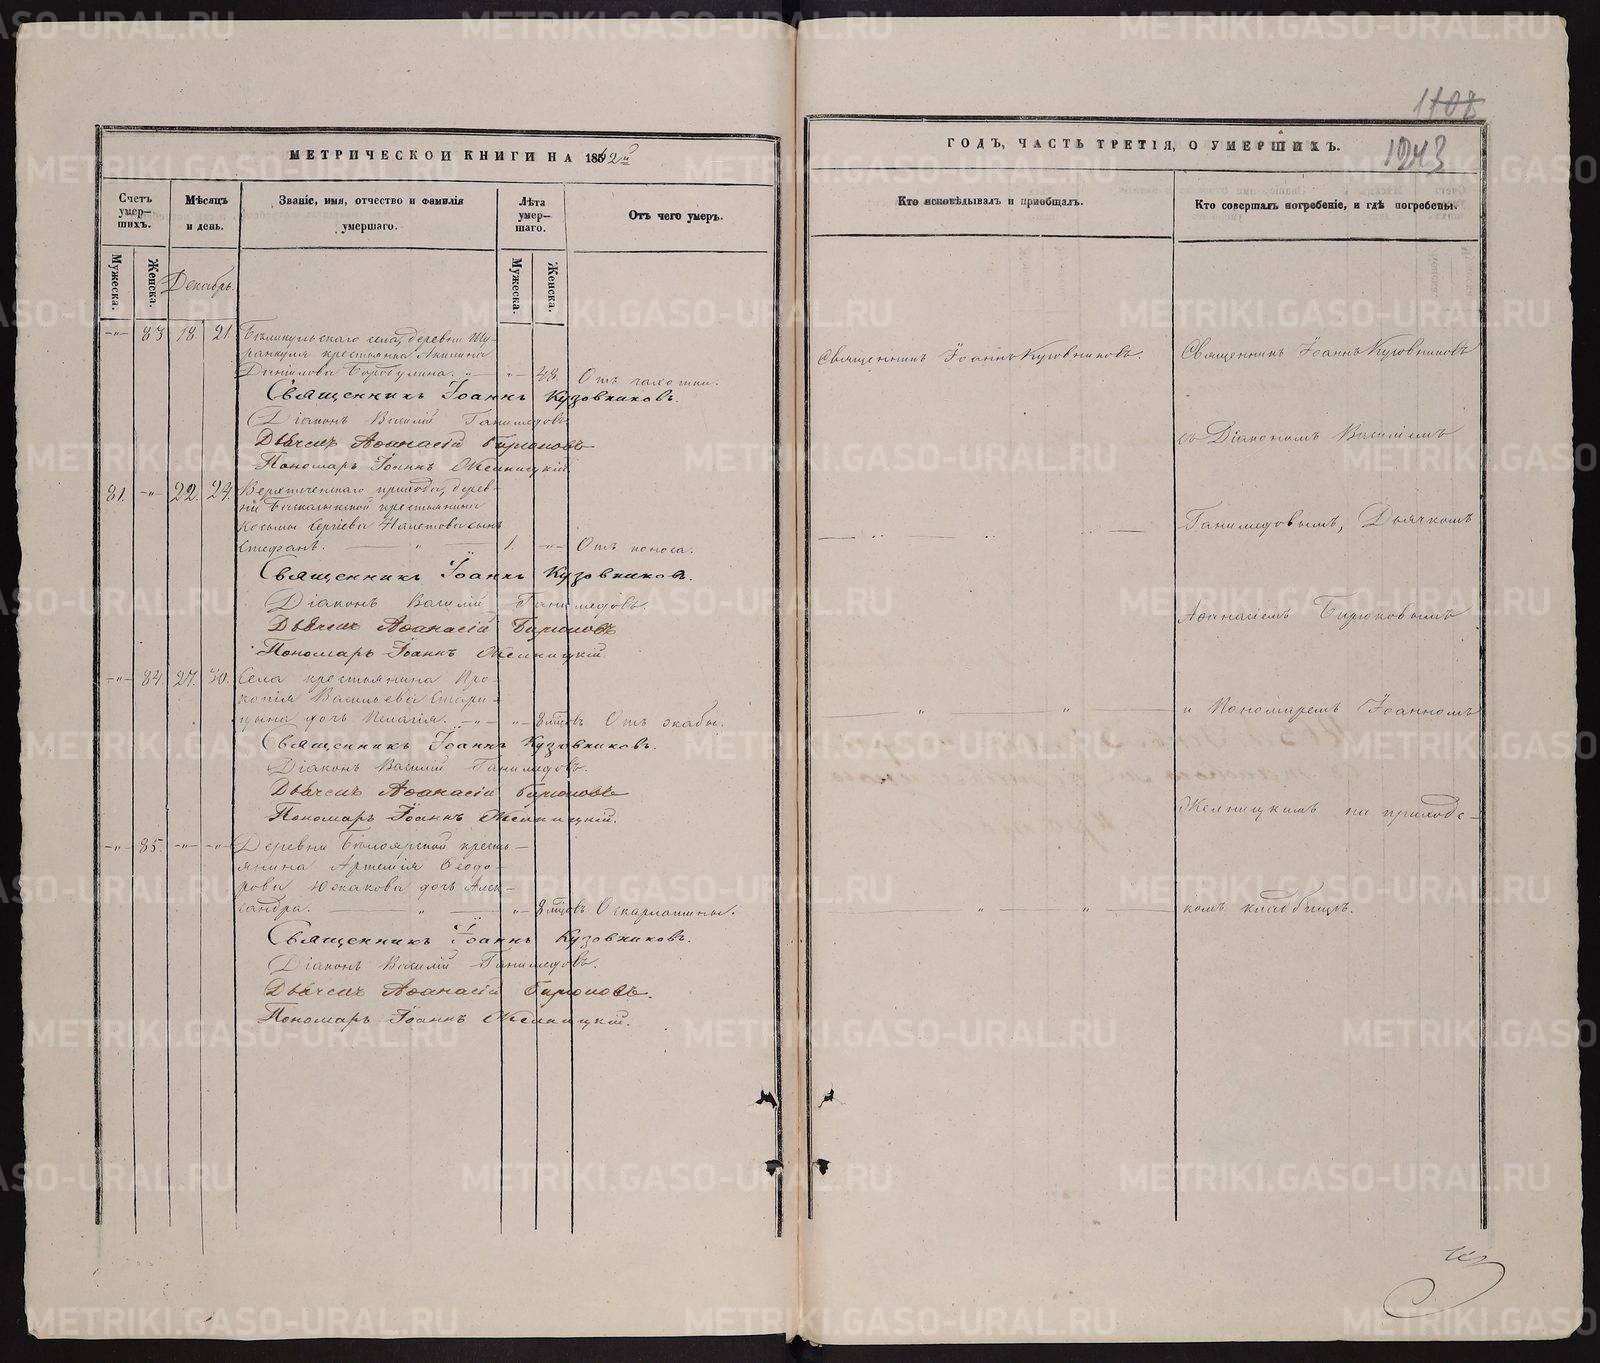 МЕТРИЧЕСКОЙ КНИГИ НА 1862й
Счетъ умер-
шихъ.
Мѣсяцъ
и день.
Званіе, имя, отчество и фамилія
умершаго.
Лѣта
умер-
шаго.
Отъ чего умеръ.
Мужеска.
Женска.
Декабрь.
Мужеска.
Женска.
83 18. 21. села, деревни
крестьянка Акилина
Данилова Бородулина. 48. Отъ чахотки.
Священникъ Іоаннъ Кузовниковъ.
Діаконъ Василій Ганимедовъ
Дьячекъ Аѳанасій Бирюковъ
Пономарь Іоаннъ
81. 22. 24. прихода, дерев-
ни крестьянина
Козьмы Сергіева сынъ
Стефанъ. 1. Отъ поноса.
Священникъ Іоаннъ Кузовниковъ.
Діаконъ Василій Ганимедовъ.
Дьячекъ Аѳанасій Бирюковъ
Пономарь Іоаннъ
84. 27. 30. Села крестьянина Про-
копія Васильева Стари-
цына дочь Пелагія. Отъ
Священникъ Іоаннъ Кузовниковъ.
Діаконъ Василій Ганимедовъ.
Дьячекъ Аѳанасій Бирюковъ
Пономарь Іоаннъ
85. Деревни Бѣлоярской кресть-
янина Артемія Ѳеодо-
рова Южакова дочь Алек-
сандра.
Священникъ Іоаннъ Кузовниковъ.
Діаконъ Василій Ганимедовъ.
Дьячекъ Аѳанасій Бирюковъ.
Пономарь Іоаннъ
1108
1243
ГОДЪ, ЧАСТЬ ТРЕТІЯ, О УМЕРШИХЪ.
Кто исповѣдывалъ и приобщалъ.
Кто совершалъ погребеніе, и гдѣ погребены.
Священникъ Іоаннъ Кузовниковъ.
Священникъ Іоаннъ Кузовниковъ
съ Діакономъ Василіемъ
Ганимедовымъ, Дьячкомъ
Аѳанасіемъ Бирюковымъ
и Пономаремъ Іоанномъ
на приходс-
комъ кладбищѣ.
METRIKI.GASO-URAL.RU